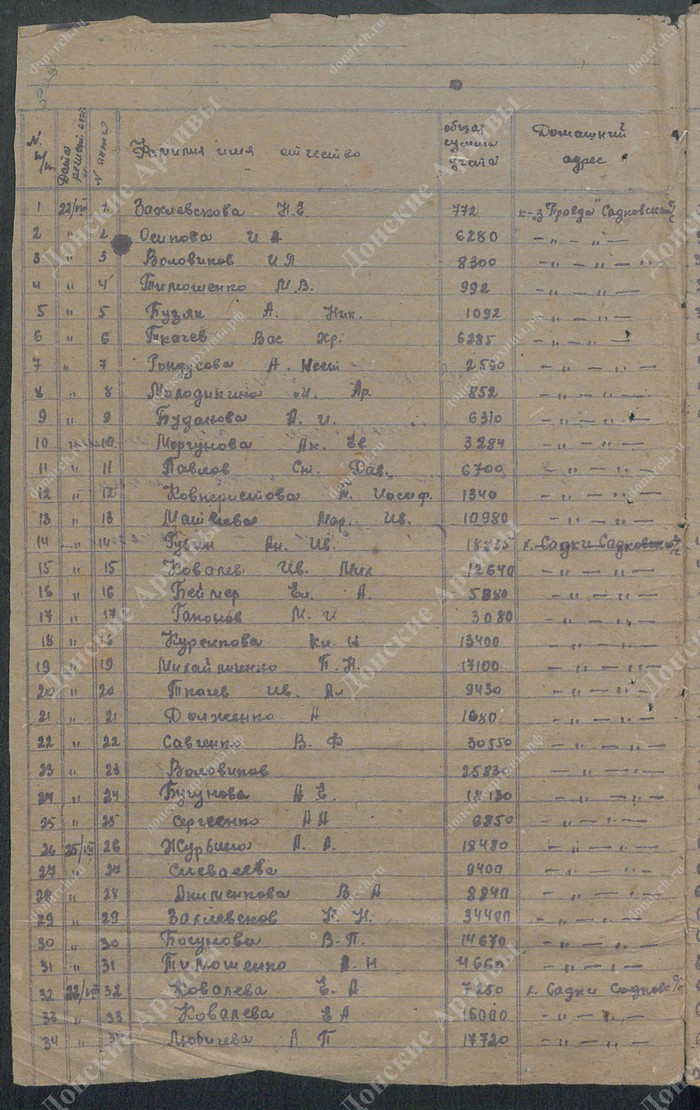 N п/п Дата решения N акта Фамилия имя отчество общая сумма ущерба Домашний адрес
1 22/VII 1 Захлевскова Н.Е 772 к-з "Правда" Садковский с/с
2 " 2 Осипова И А 6280 — " — " —
3 " 3 Воловиков И Я 8300 — " — " —
4 " 4 Тимошенко М.В. 992 — " — " —
5 " 5 Бузяк А. Ник. 1092 — " — " —
6 " 6 Ткачев Вас Хр. 6285 — " — " —
7 " 7 А. 2560 — " — " —
8 " 8 Молодикина И. Ар. 852 — " — " —
9 " 9 Буданова А. И. 6310 — " — " —
10 " 10 Моргунова Ак. Ев 3284 — " — " —
11 " 11 Павлов Ст. Дав. 6700 — " — " —
12 " 12 Иосиф. 1340 — " — " —
13 " 13 Матвеева Мар. Ив. 10980 — " — " —
14 " 14 Ан. Ив. х. Садки Садковский с/с
15 " 15 Ковалев Ив. Мих 12640 — " — " —
16 " 16 Беймер Ел. А. 5880 — " — " —
17 " 17 Гапонов М. И 3080 — " — " —
18 " 18 13400 — " — " —
19 " 19 Михайличенко П.Н. 17100 — " — " —
20 " 20 Ткачев Ив. Ал 9430 — " — " —
21 " 21 Долженко А 1680 — " — " —
22 " 22 Савченко В. Ф 30550 — " — " —
23 " 23 Воловиков 25830 — " — " —
24 " 24 Бугунова А Е. — " — " —
25 " 25 Сергеенко А А 6250 — " — " —
26 25/VII 26 А. А. 18480 — " — " —
27 " 27 9400 — " — " —
28 " 28 Акименкова В А 8240 — " — " —
29 " 29 Захлевсков Г. Н. 34400 — " — " —
30 " 30 Богунова В.П. 14670 — " — " —
31 " 31 Тимошенко А.Н 4660 — " — " —
32 22/VII 32 Ковалева Е. А 7250 х. Садки Садковс с/с
33 " 33 Ковалева Е А 16000 — " — " —
34 " 34 Любичева Л П 17720 — " — " —
Донские Архивы
donarch.ru
донскиеархивы.рф